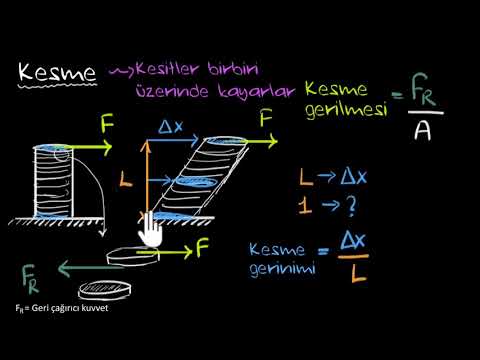 Kesme
→ Kesitler birbiri
üzerinde kayarlar
Kesme
gerilmesi = F_R / A
F
Δx
F
L
L → Δx
1 → ?
F
Kesme
gerinimi = Δx / L
F_R
F_R = Geri çağırıcı kuvvet